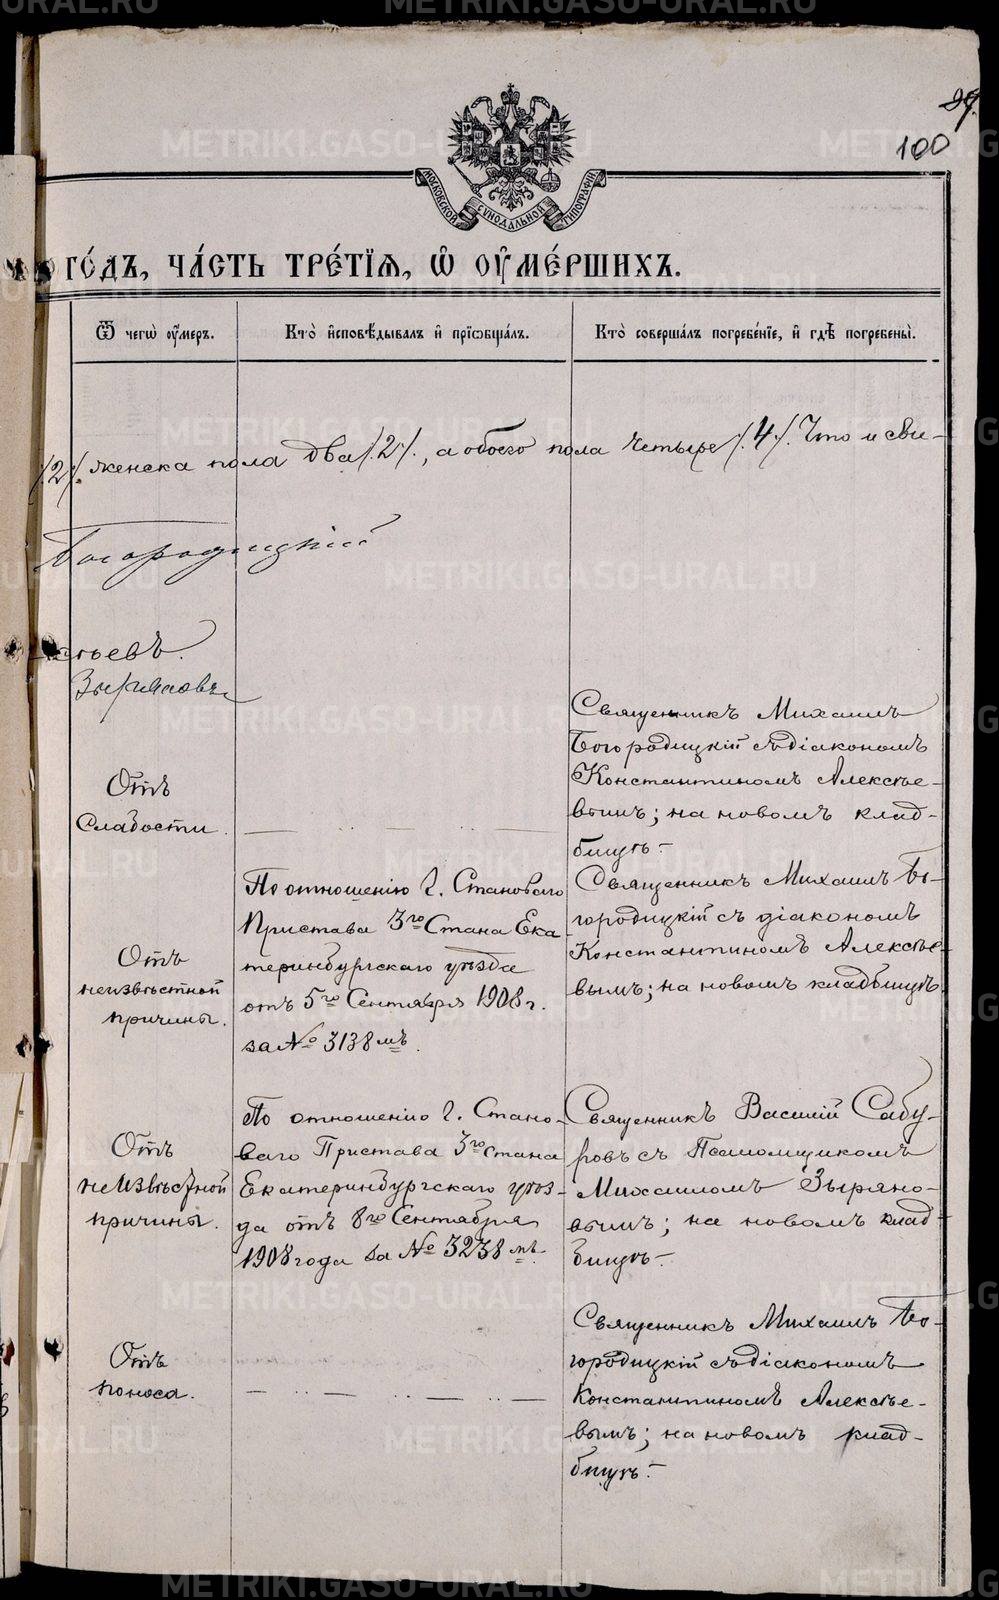 100
МОСКОВСКОЙ СѴНОДАЛЬНОЙ ТИПОГРАФІИ
ГО́ДЪ, ЧА́СТЬ ТРЕ́ТІЯ, Ѡ҆ ОУ҆МЕ́РШИХЪ.
Ѿ чегѡ̀ оу҆́меръ.
Кто̀ и҆сповѣ́дывалъ и҆ прїѡбща́лъ.
Кто̀ соверша́лъ погребе́нїе, и҆ гдѣ̀ погребены̀.
/2/. женска пола два /2/., а обоего пола четыре /.4/. Что и сви-
Богородицкій
Зыряновъ
Отъ
слабости.
Священникъ Михаилъ
Богородицкій съ діакономъ
Константиномъ Алексѣе-
вымъ; на новомъ клад-
бищѣ.-
Отъ
неизвѣстной
причины.
По отношенію г. Становаго
Пристава 3го Стана Ека
теринбургскаго уѣзда
отъ 5го Сентября 1908 г.
за № 3138 мъ.
Священникъ Михаилъ Бо-
городицкій съ діакономъ
Константиномъ Алексѣе-
вымъ; на новомъ кладбищѣ.
Отъ
неизвѣстной
причины.
По отношенію г. Стано-
ваго Пристава 3го Стана
Екатеринбургскаго уѣз-
да отъ 8го Сентября
1908 года за № 3238 мъ.
Священникъ Василій Сабу-
ровъ съ Псаломщикомъ
Михаиломъ Зыряно-
вымъ; на новомъ клад
бищѣ.-
Отъ
поноса.
Священникъ Михаилъ Бо-
городицкій съ діакономъ
Константиномъ Алексѣе-
вымъ; на новомъ клад-
бищѣ.-
METRIKI.GASO-URAL.RU